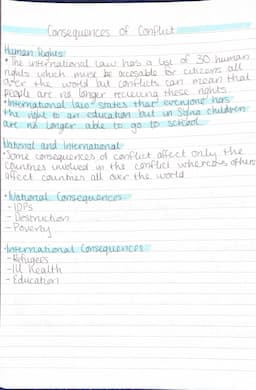 Consequences of Conflict
Human Rights
• The international law has a list of 30 human
rights which must be accesable for citizens all
over the world but conflicts can mean that
people are no longer recieving these rights.
• International law states that everyone has
the right to an education but in Syria children
are no longer able to go to school.
National and International
• Some consequences of conflict affect only the
countries involved in the conflict whereas others
affect countries all over the world.
• National Consequences
- IDPs
- Destruction
- Poverty
• International Consequences
- Refugees
- Ill Health
- Education